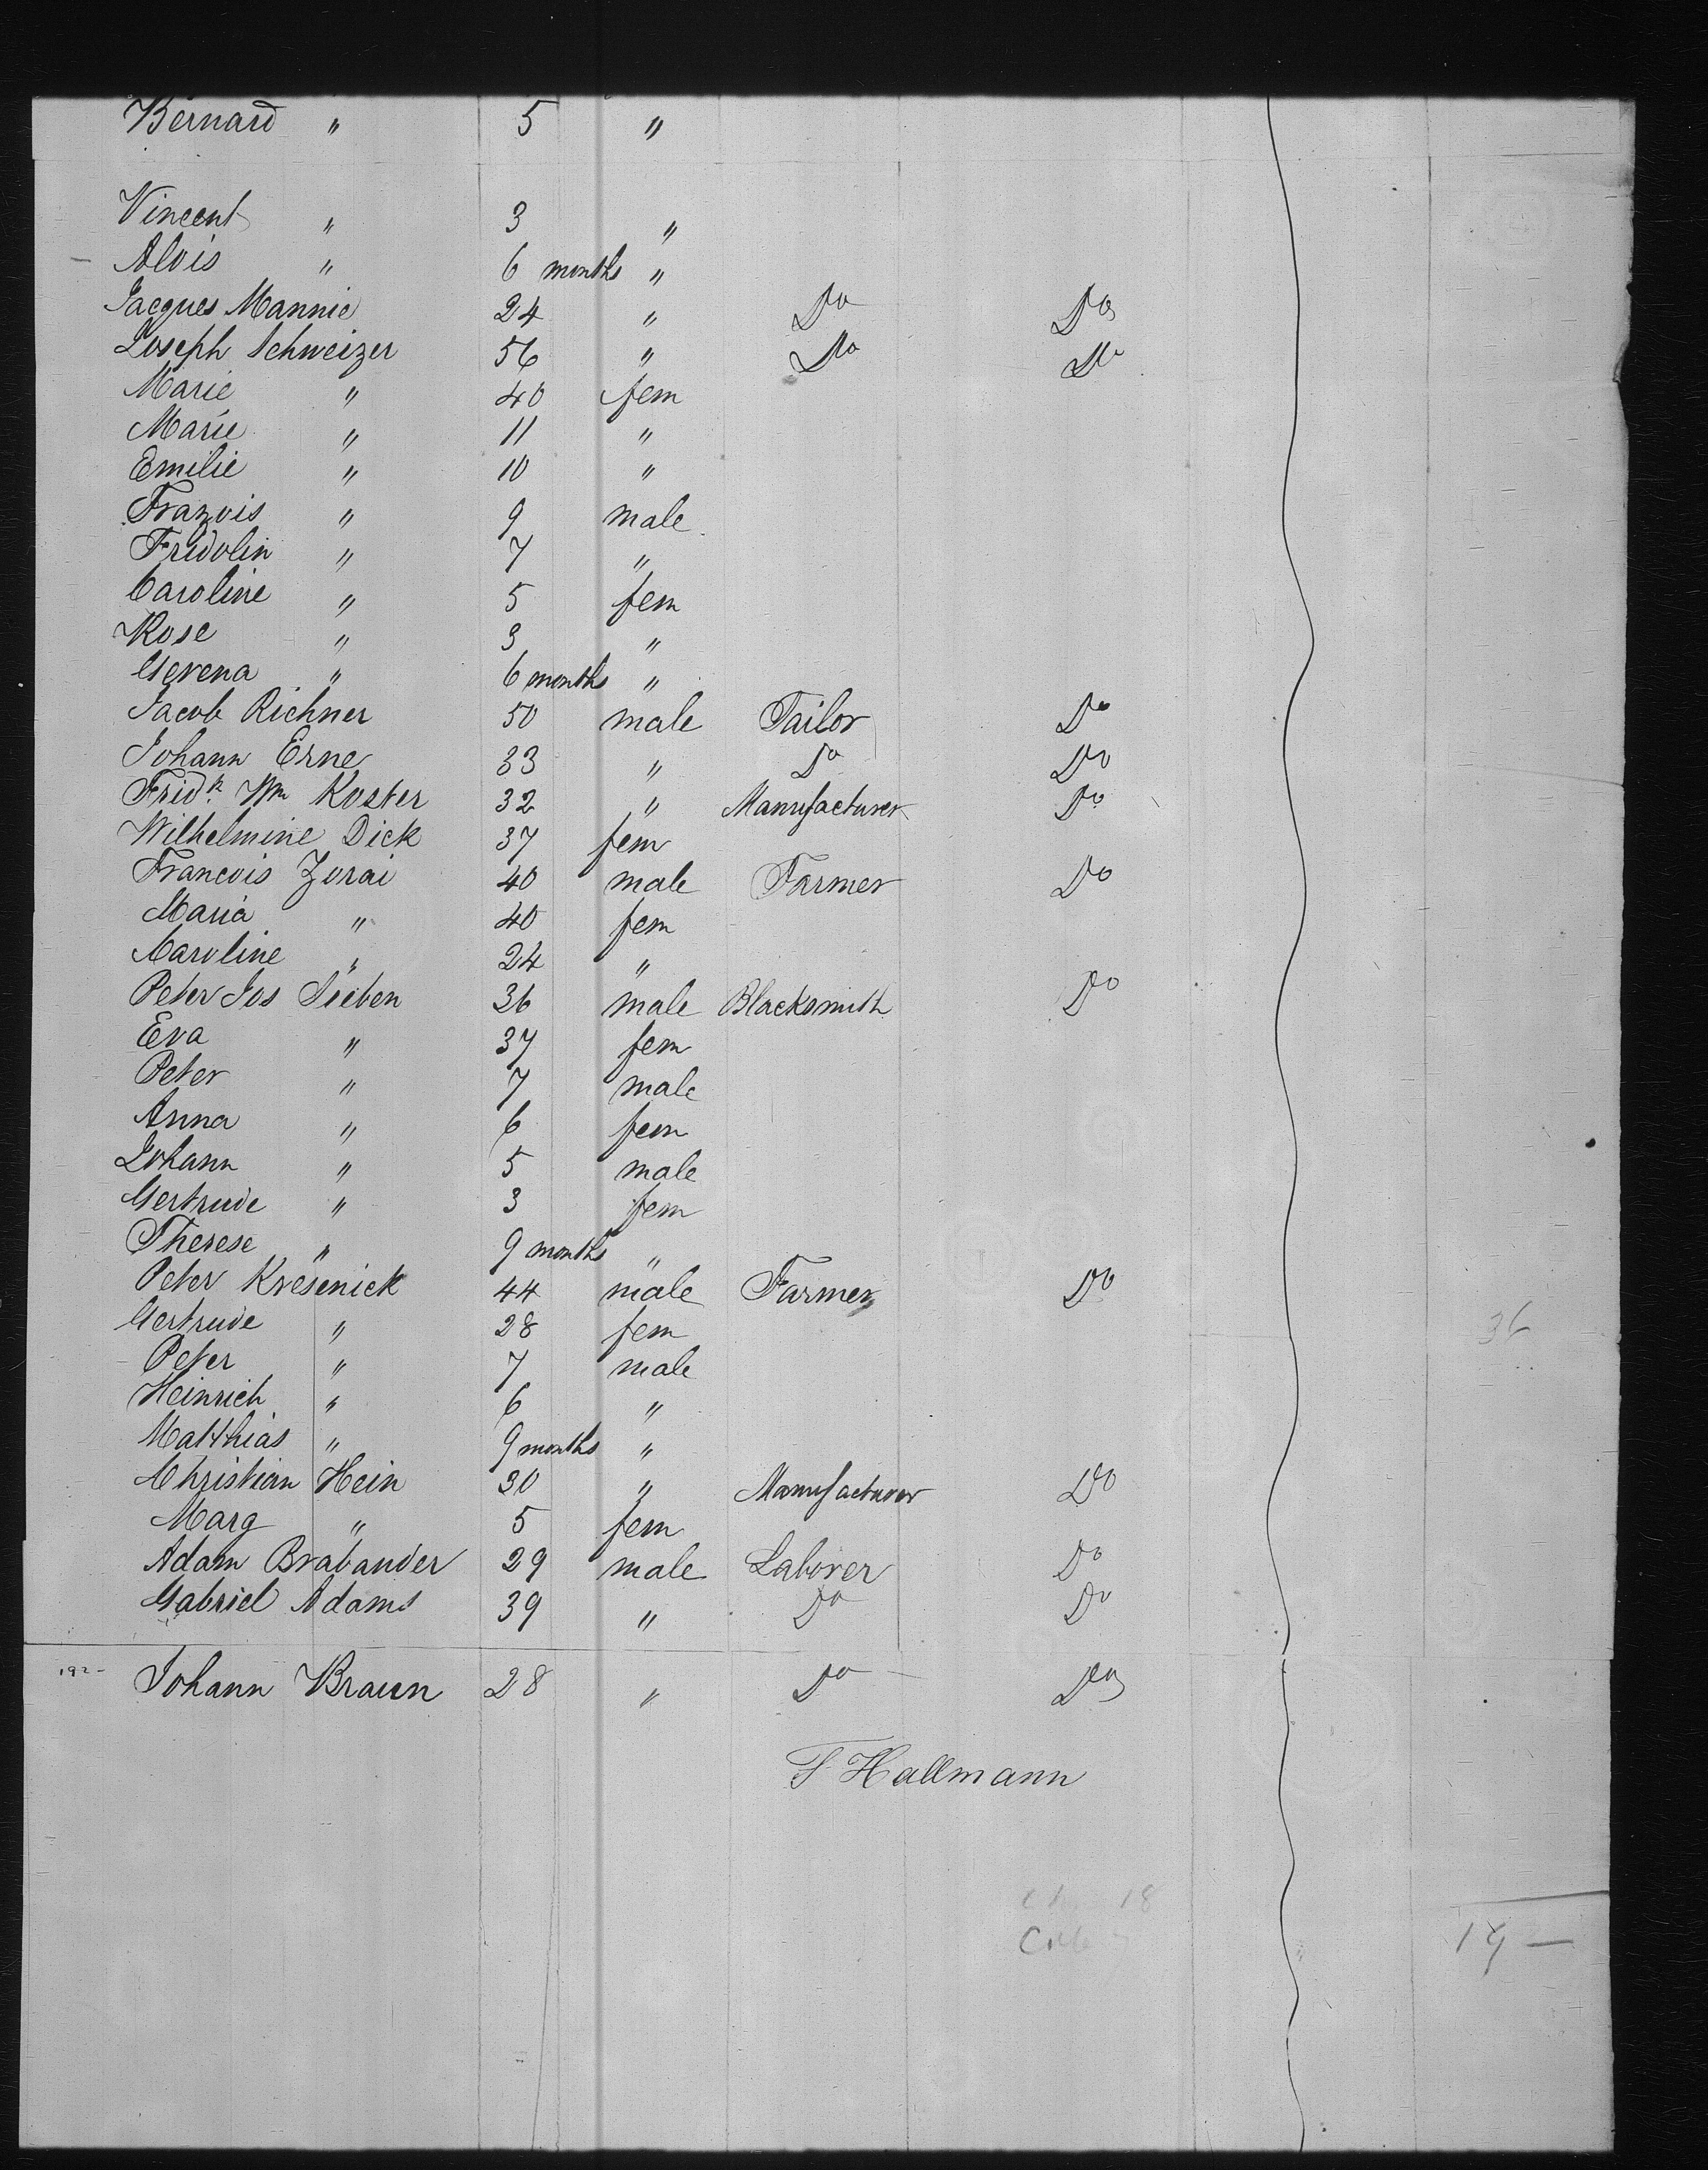 Bernard " 5 "
Vincent " 3 "
Alois " 6 months "
Jacques Mannie 24 " Do Do
Joseph Schweizer 56 " Do Do
Marie " 40 fem
Marie " 11 "
Emilie " 10 "
Franzois " 9 male
Fridolin " 7 "
Caroline " 5 fem
Rose " 3 "
Gerena " 6 months "
Jacob Richner 50 male Tailor Do
Johann Erne 33 " Do Do
Fridk. Wm Koster 32 " Manufacturer Do
Wilhelmine Dick 37 fem
Francois Zurai 40 male Farmer Do
Maria " 40 fem
Caroline " 24 "
Peter Jos Sieben 36 male Blacksmith Do
Eva " 37 fem
Peter " 7 male
Anna " 6 fem
Johann " 5 male
Gertrude " 3 fem
Therese " 9 months "
Peter Kresenick 44 male Farmer Do
Gertrude " 28 fem
36
Peter " 7 male
Heinrich " 6 "
Matthias " 9 months "
Christian Hein 30 " Manufacturer Do
Marg " 5 fem
Adam Brabander 29 male Laborer Do
Gabriel Adams 39 " Do Do
192- Johann Braun 28 " Do Do
F Hallmann
18
19 —